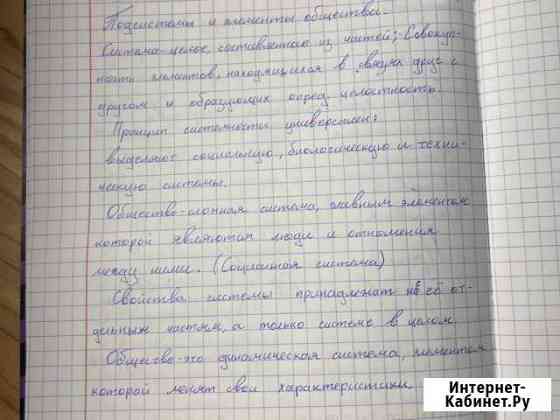 Подсистемы и элементы общества.
Система-целое, составленное из частей; Совокуп-
ность элементов, находящихся в связях друг с
другом и образующих опред. целостность.
Принцип системности универсален:
выделяют социальную, биологическую и техни-
ческую системы.
Общество-сложная система, главным элементом
которой являются люди и отношения
между ними. (Социальная система)
Свойства системы принадлежат не её от-
дельным частям, а только системе в целом.
Общество-это динамическая система, элементы
которой меняют свои характеристики
Интернет-
Кабинет.Ру